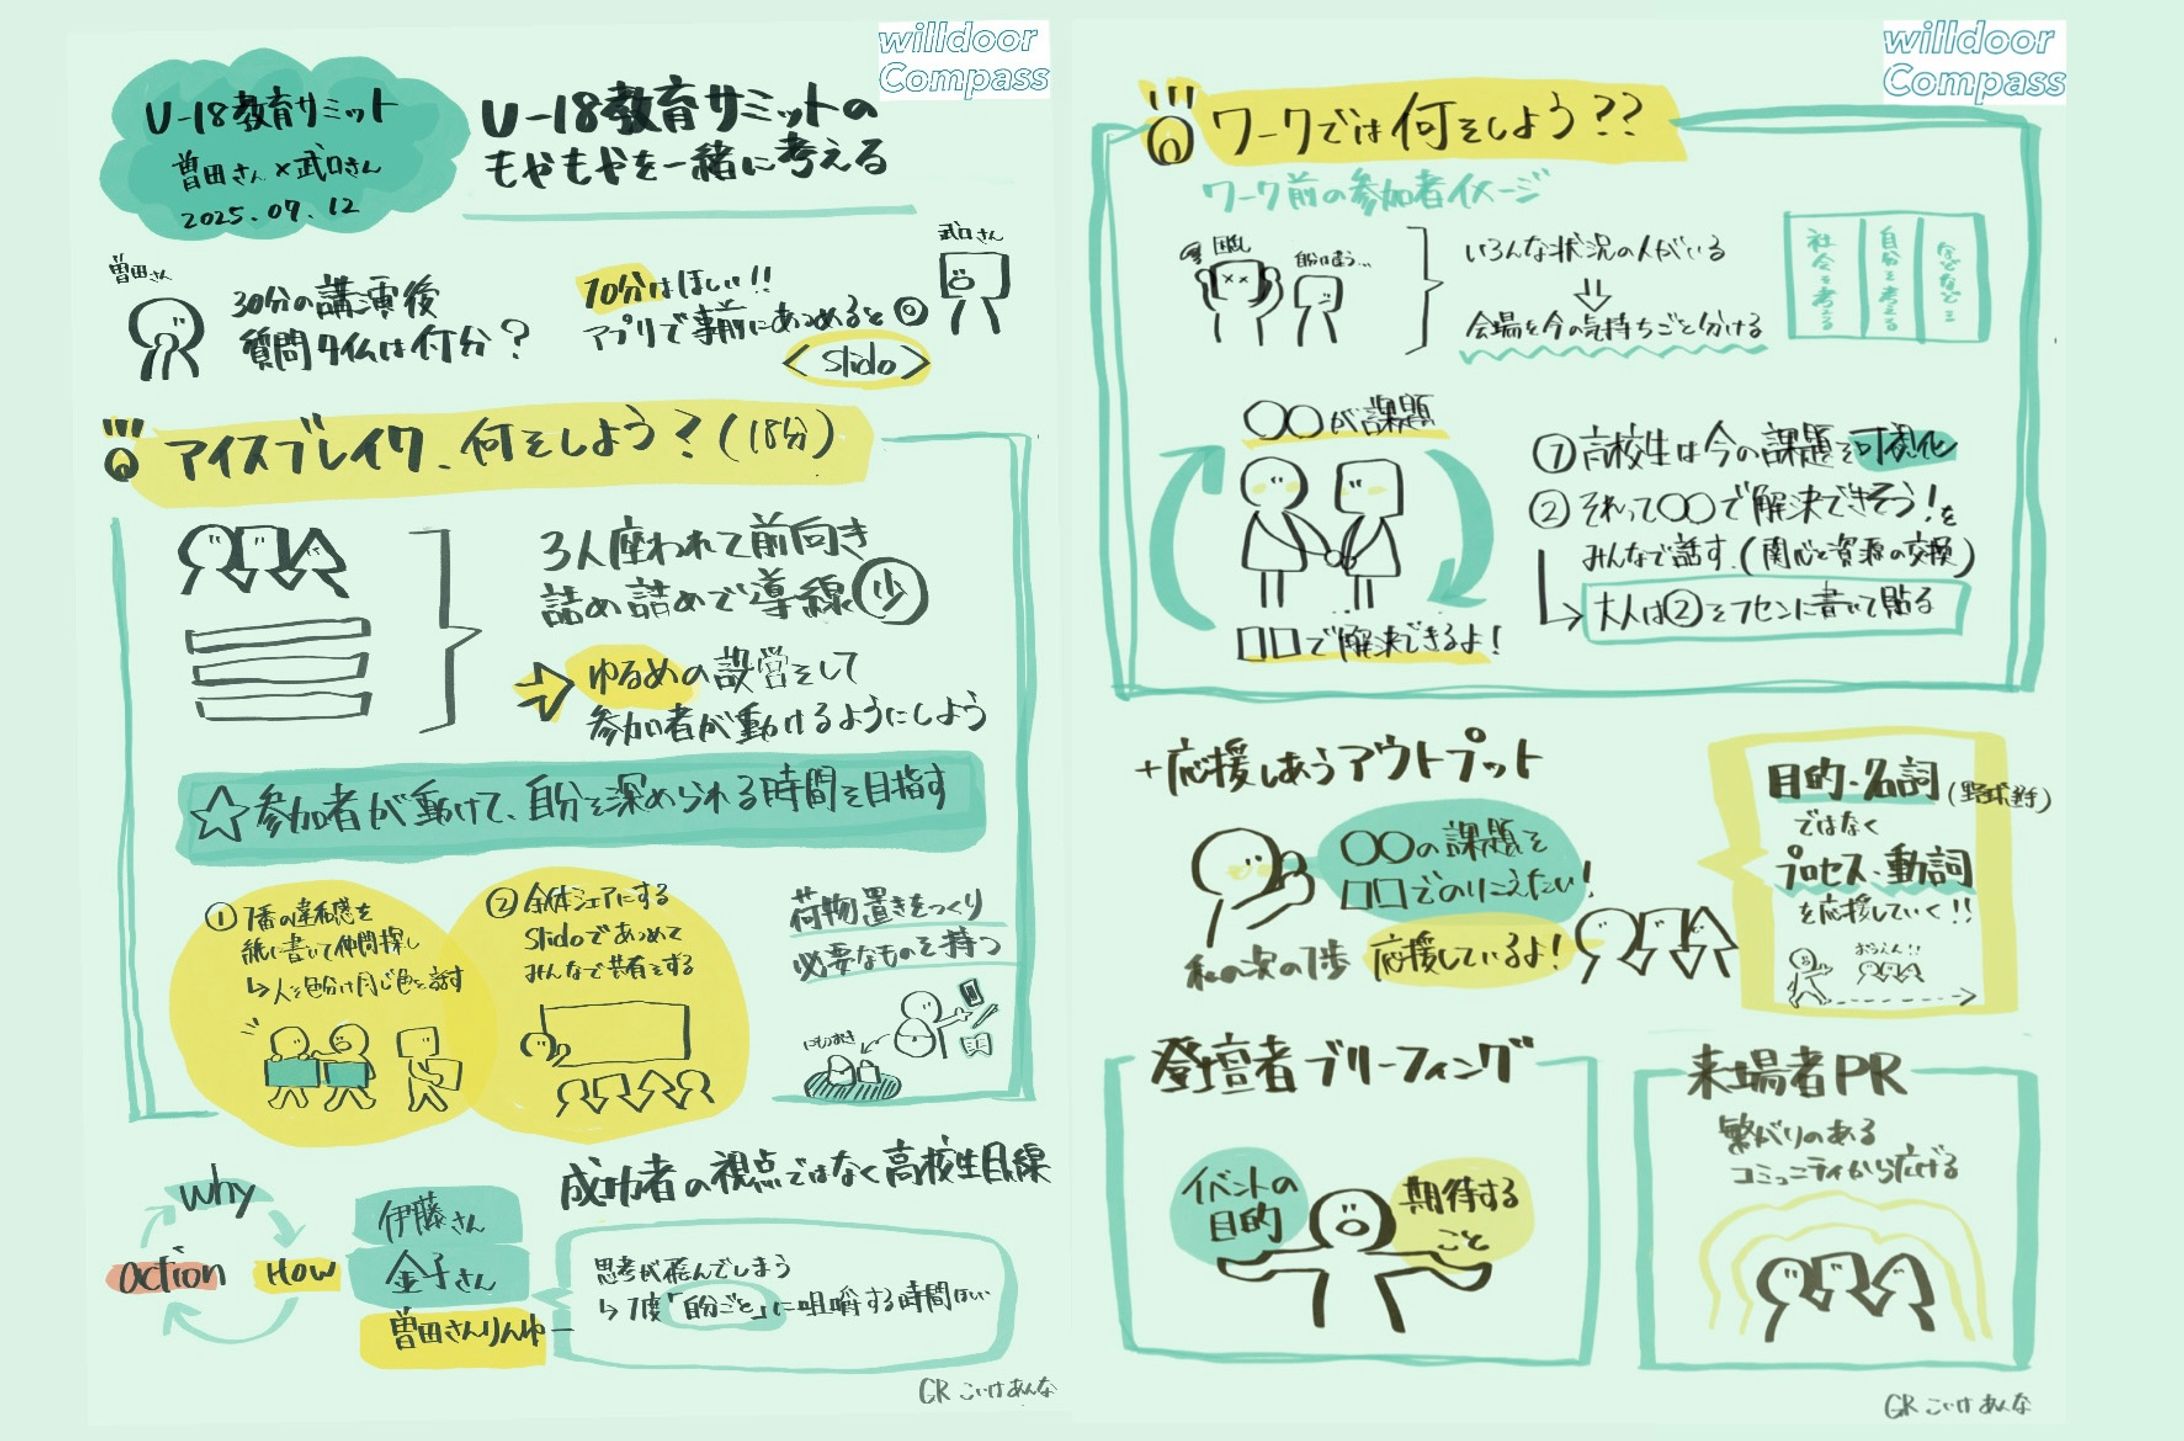 willdoor
Compass
U-18教育サミット
曽田さん×武口さん
2025.07.12
U-18教育サミットの
もやもやを一緒に考える
曽田さん
30分の講演後
質問タイムは何分?
武口さん
10分はほしい!!
アプリで事前にあつめると◎
<slido>
アイスブレイク、何をしよう?(18分)
3人座われて前向き
詰め詰めで導線少
ゆるめの設営をして
参加者が動けるようにしよう
☆参加者が動けて、自分を深められる時間を目指す
① 1番の違和感を
紙に書いて仲間探し
↳人を色分け同じ色で話す
② 全体シェアにする
Slidoであつめて
みんなで共有をする
荷物置きをつくり
必要なものを持つ
にもつおき
why
action
How
伊藤さん
金子さん
曽田さんりんゆー
成功者の視点ではなく高校生目線
思考が飛んでしまう
↳1度「自分ごと」に咀嚼する時間ほしい
GR こいけあんな
willdoor
Compass
ワークでは何をしよう??
ワーク前の参加者イメージ
混乱
自分は違う...
いろんな状況の人がいる
⇓
会場を今の気持ちごと分ける
社会を考える
自分を考える
などなど
〇〇が課題
□□で解決できるよ!
① 高校生は今の課題を可視化
② それって〇〇で解決できそう!を
みんなで話す.(関心と資源の交換)
↳ 大人は②をフセンに書いて貼る
+応援しあうアウトプット
〇〇の課題を
□□でのりこえたい!
私の次の1歩
応援しているよ!
目的・名詞(野球選手)
ではなく
プロセス・動詞
を応援していく!!
おうえん!!
登壇者ブリーフィング
イベントの
目的
期待する
こと
来場者PR
繋がりのある
コミュニティから広げる
GR こいけあんな